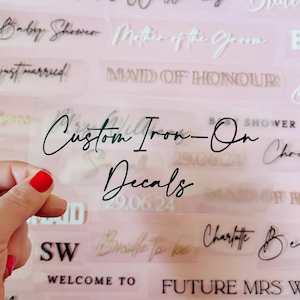 Bride
Baby Shower
Mother of the Groom
B
just married
MAID OF HONOUR
Custom Iron-On
BABY SHOWER
Decals
29.06.24
29.06.24
MAID OF H
SW
Bride to be
Charlotte Be
WELCOME TO
FUTURE MRS W